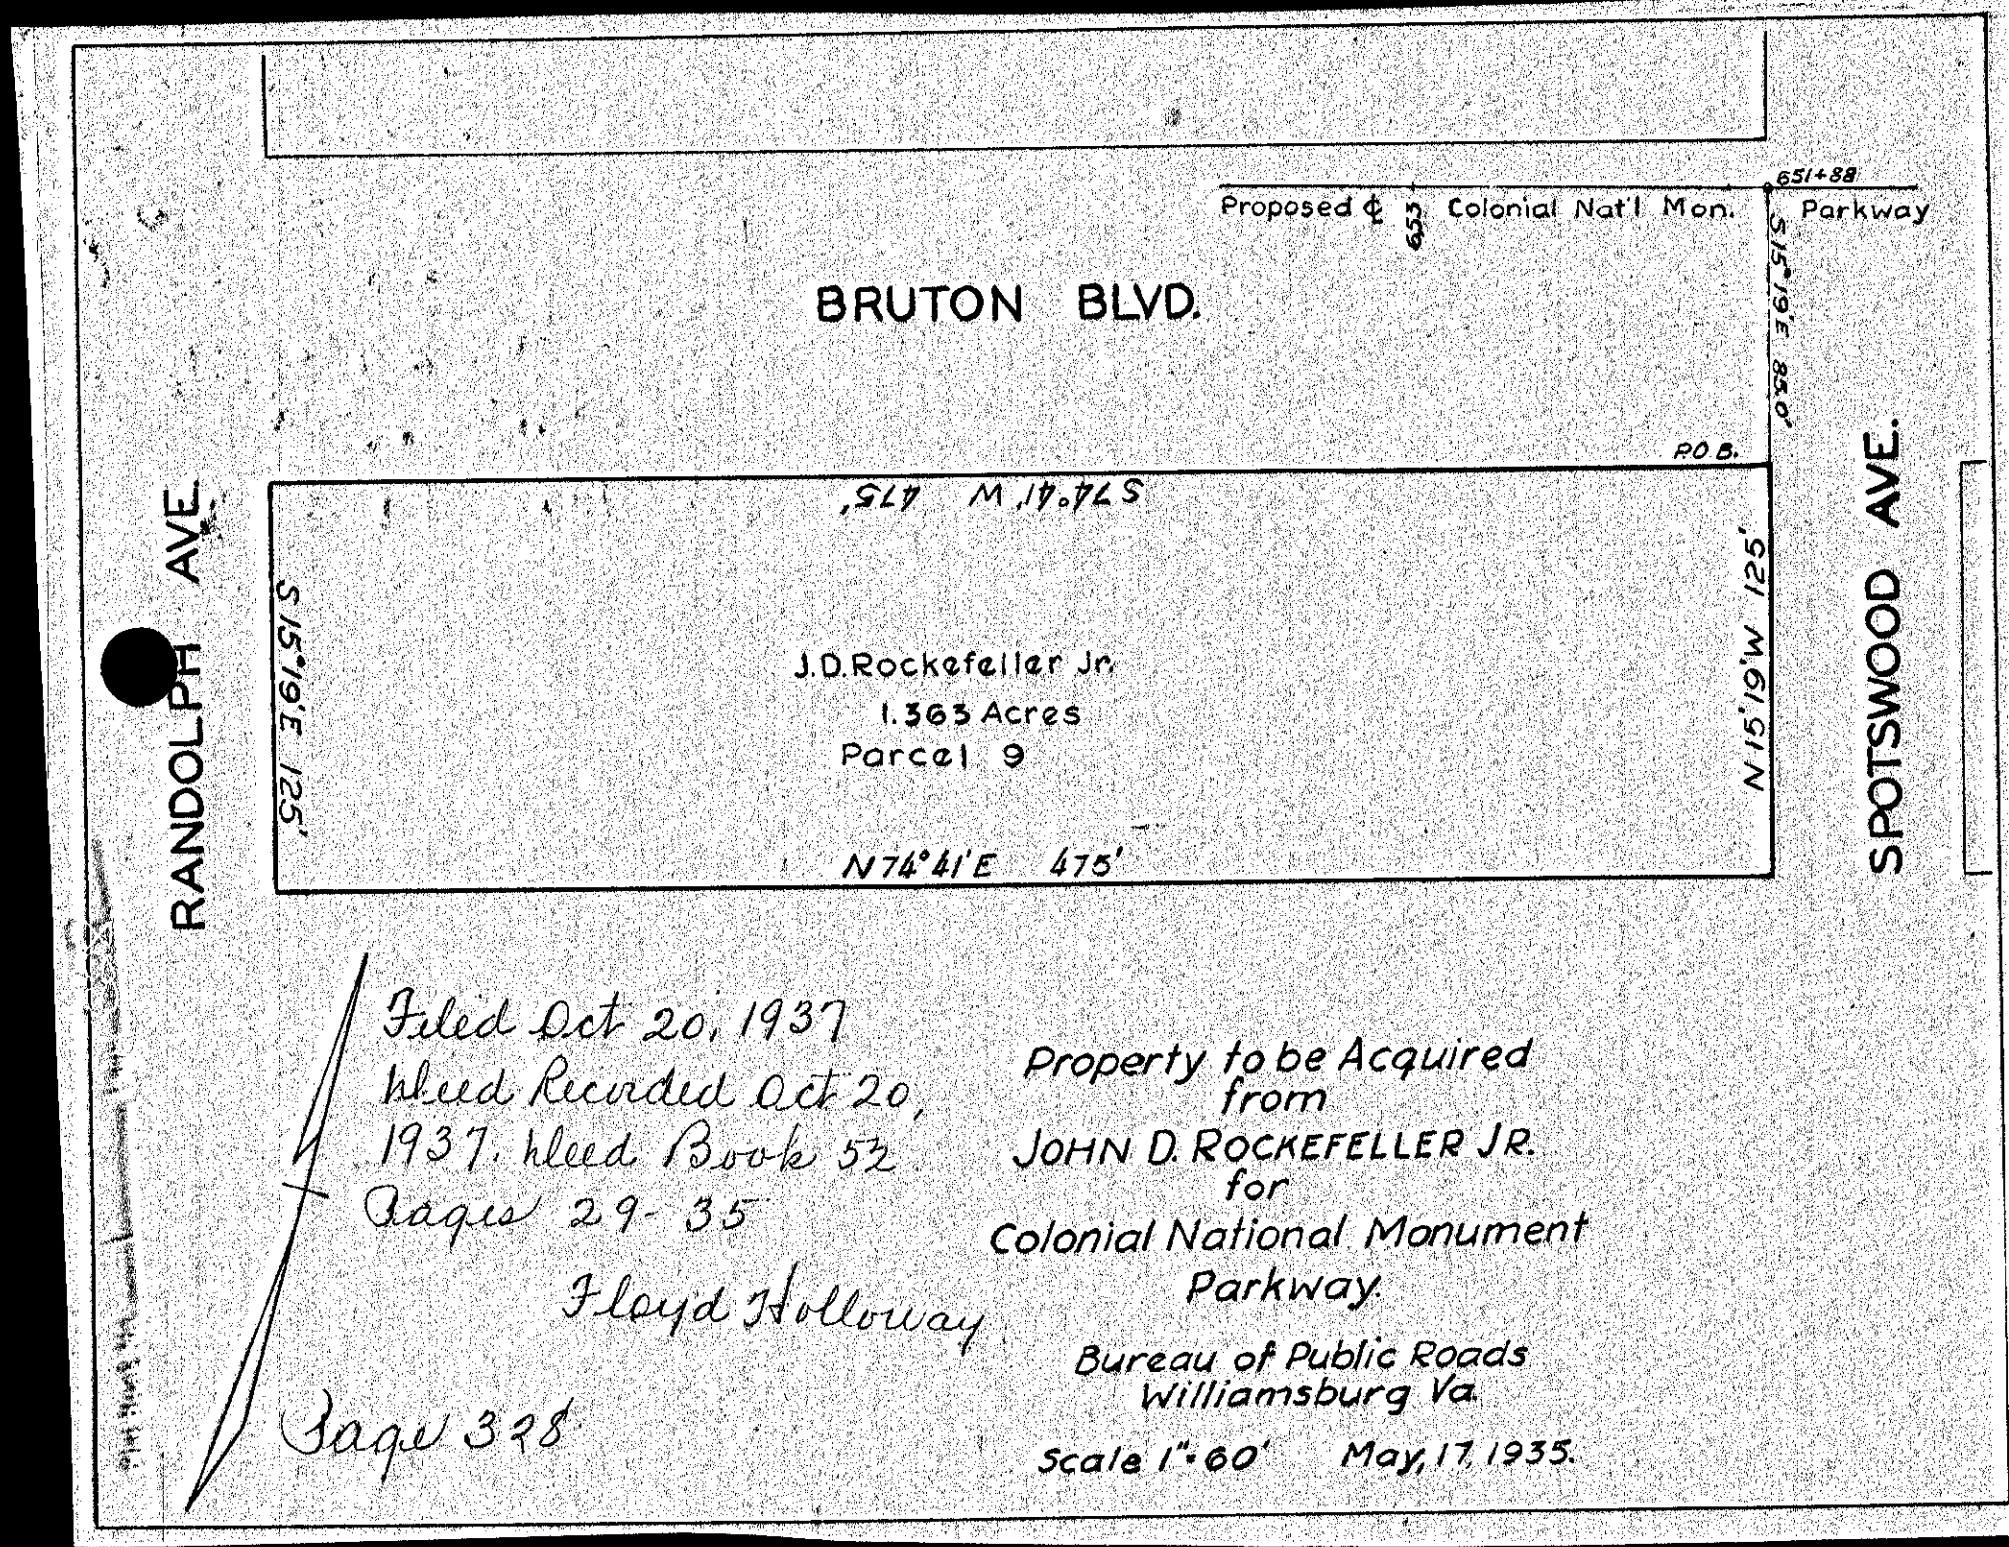 651+88
Proposed ℄ 653 Colonial Nat'l Mon. Parkway
S15°19'E 85.0'
BRUTON BLVD.
P.O.B.
S 74°41' W 475'
RANDOLPH AVE.
S 15°19'E 125'
J.D.Rockefeller Jr.
1.363 Acres
Parcel 9
N 15°19'W 125'
SPOTSWOOD AVE.
N 74°41'E 475'
Filed Oct 20, 1937
Deed Recorded Oct 20,
1937. Deed Book 52
Pages 29-35
Floyd Holloway
Page 328
Property to be Acquired
from
JOHN D. ROCKEFELLER JR.
for
Colonial National Monument
Parkway.
Bureau of Public Roads
Williamsburg Va.
Scale 1"=60' May, 17, 1935.